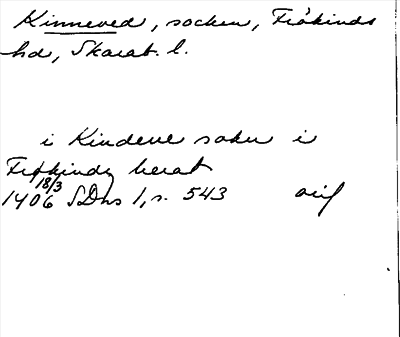 Kinneved, socken, Frökinds
hd, Skarab. l.
i Kindeve sokn i
Frökindz herat
18/3
1406 SDns 1, s. 543 orig